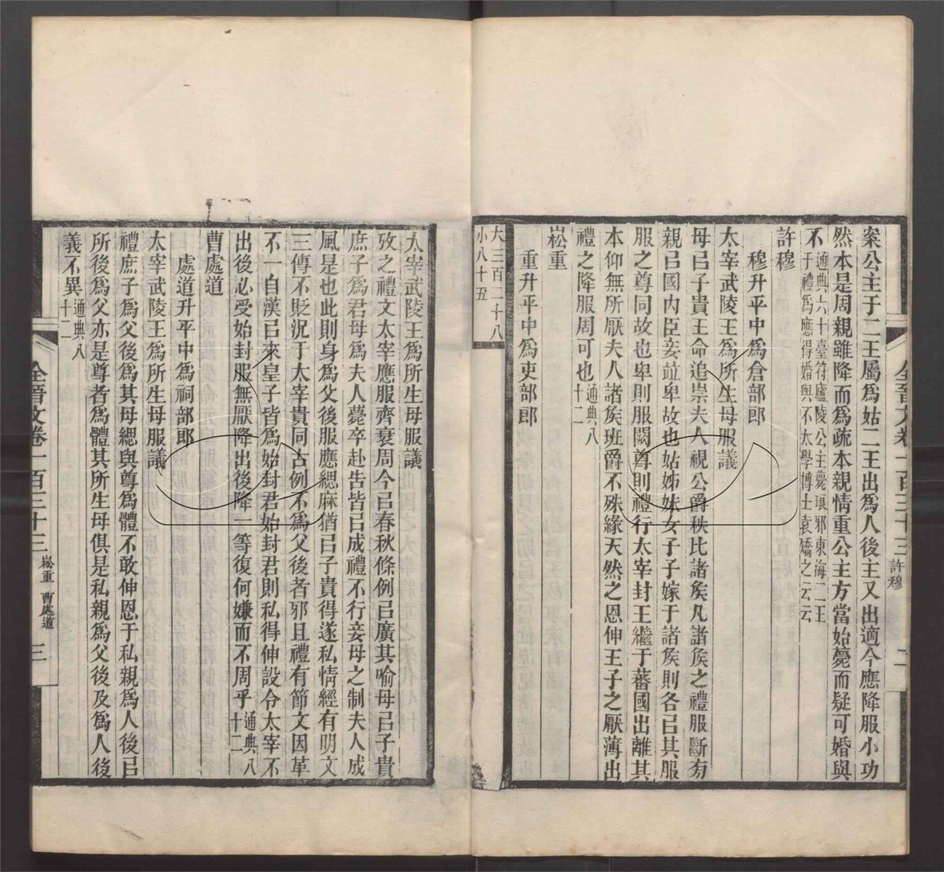 案公主于二王屬爲姑二王出爲人後主又出適今應降服小功
然本是周親雖降而爲疏本親情重公主方當始薨而疑可婚與
不通典六十臺符廬陵公主薨琅邪東海二王于禮爲應得婚與不太學博士袁矯之云云
許穆
穆升平中爲倉部郎
太宰武陵王爲所生母服議
母㠯子貴王命追崇夫人視公爵秩比諸矦凡諸矦之禮服斷旁
親㠯國内臣妾竝卑故也姑姊妹女子子嫁于諸矦則各㠯其服
服之尊同故也卑則服闋尊則禮行太宰封王繼于蕃國出離其
本仰無所厭夫八諸矦班爵不殊緣天然之恩伸王子之厭薄出
禮之降服周可也通典八十二
崧重
重升平中爲吏部郎
大三百二十八
小八十五
全晉文卷一百三十三 許穆 二
太宰武陵王爲所生母服議
攷之禮文太宰應服齊衰周今㠯春秋條例㠯廣其喻母㠯子貴
庶子爲君母爲夫人薨卒赴告皆㠯成禮不行妾母之制夫人成
風是也此則身爲父後服應緦麻猶㠯子貴得遂私情經有明文
三傳不貶況于太宰貴同古例不爲父後者邪且禮有節文因革
不一自漢㠯來皇子皆爲始封君始封君則私得伸設令太宰不
出後必受始封服無厭降出後降一等復何嫌而不周乎通典八十二
曹處道
處道升平中爲祠部郎
太宰武陵王爲所生母服議
禮庶子爲父後爲其母緦與尊爲體不敢伸恩于私親爲人後㠯
所後爲父亦是尊者爲體其所生母俱是私親爲父後及爲人後
義不異通典八十二
全晉文卷一百三十三 崧重 曹處道 三